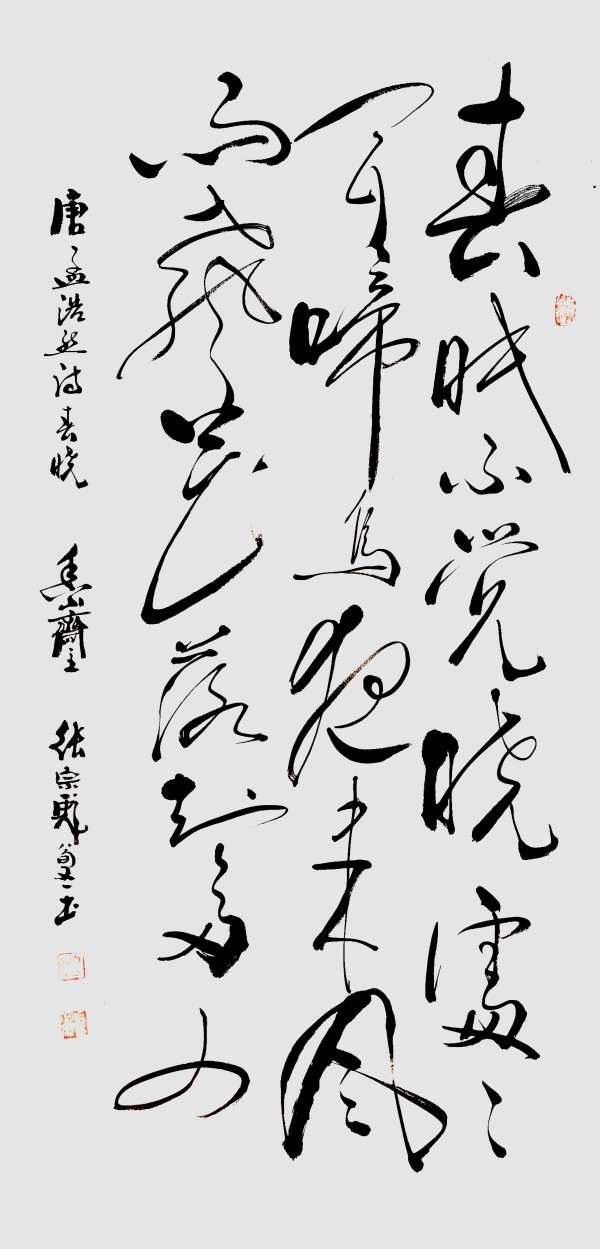 春眠不觉晓處々
闻啼鸟夜来风
雨声花落知多少
唐孟浩然诗春晓 香山齋主 张宗彪 书